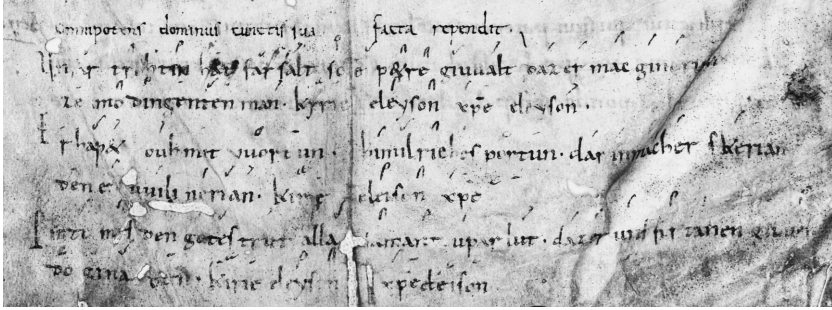 Omnipotens dominus cunctis sua facta rependit.
Unsar trohtin hat farsalt sce petre giuualt daz er mac ginerian
ze imo dingenten man. kyrie eleyson xpe eleyson.
Er hapet ouh mit vuortun himilriches portun. dar in mach er skerian
den er uuili nerian. kirie eleison xpe
den gotes trut alla samant uparlut. daz er uns firtanen giuuer
do ginaden. kirie eleyson xpe eleison